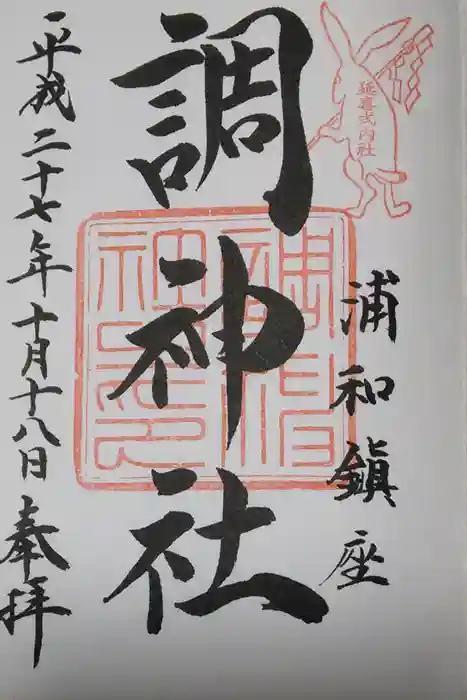 延喜式内社
浦和鎮座
調神社
平成二十七年十月十八日奉拝